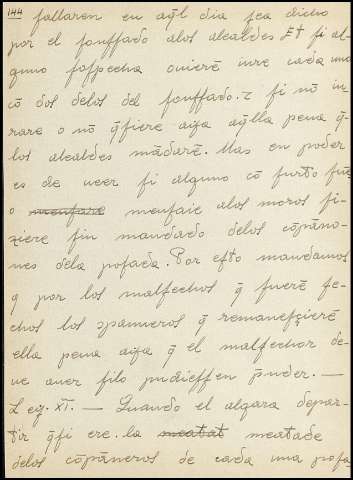 144 fallaren en aq̃l dia sea dicho
por el sonssado alos alcaldes Et si al-
guno sospecha ouierẽ iure cada uno
cõ dos delos del sonssado. τ si nõ iu-
rare o nõ q̃siere aya aq̃lla pena q̃-
los alcaldes mãdarẽ. Mas en poder
es de ueer si alguno cõ furto fue
o menfaie menfaie alos moros fi-
ziere sin mandado delos cõpãno-
nes dela posada. Por esto mandamos
q por los malfechos q̃ fuerẽ fe-
chos los spanneros q̃ remanesçierẽ
ella pena aya q̃ el malfechor de-
ue auer silo pudiessen p̃nder. —
Leẏ. XI. — Quando el algara depar-
tir q̃si ere. la meatat meatade
delos cõpãneros de cada una posa-